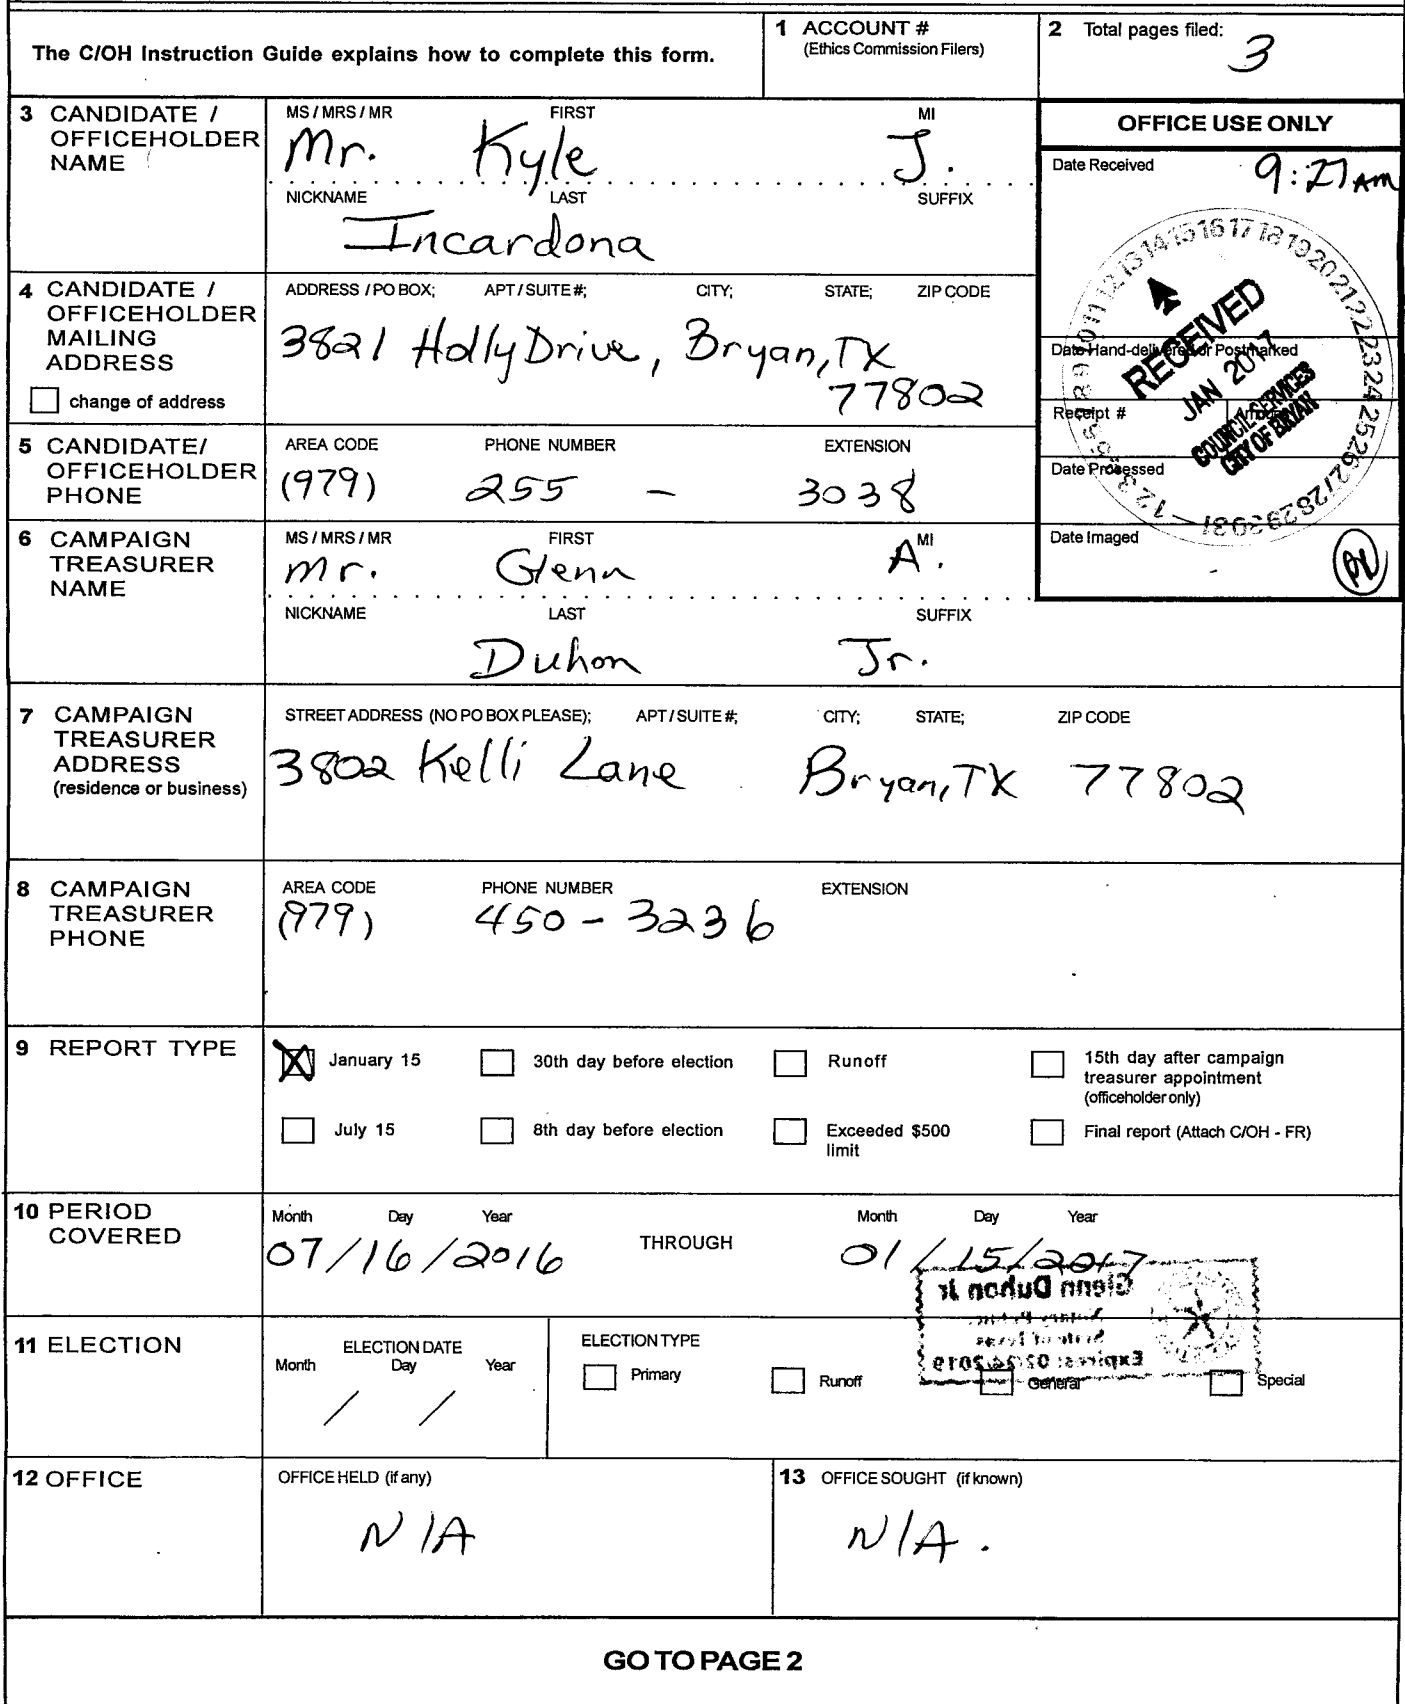 The C/OH Instruction Guide explains how to complete this form.
1 ACCOUNT #
(Ethics Commission Filers)
2 Total pages filed:
3
3 CANDIDATE /
OFFICEHOLDER
NAME
MS / MRS / MR FIRST MI
Mr. Kyle J.
NICKNAME LAST SUFFIX
Incardona
OFFICE USE ONLY
Date Received
9:27 AM
1 2 3 4 5 6 7 8 9 10 11 12 13 14 15 16 17 18 19 20 21 22 23 24 25 26 27 28 29 30 31
RECEIVED
JAN 2017
COUNCIL SERVICES
CITY OF BRYAN
Date Hand-delivered or Postmarked
Receipt # Amount
Date Processed
Date Imaged
4 CANDIDATE /
OFFICEHOLDER
MAILING
ADDRESS
change of address
ADDRESS / PO BOX; APT / SUITE #; CITY; STATE; ZIP CODE
3821 Holly Drive, Bryan, TX
77802
5 CANDIDATE/
OFFICEHOLDER
PHONE
AREA CODE PHONE NUMBER EXTENSION
(979) 255 - 3038
6 CAMPAIGN
TREASURER
NAME
MS / MRS / MR FIRST MI
Mr. Glenn A.
NICKNAME LAST SUFFIX
Duhon Jr.
7 CAMPAIGN
TREASURER
ADDRESS
(residence or business)
STREET ADDRESS (NO PO BOX PLEASE); APT / SUITE #; CITY; STATE; ZIP CODE
3802 Kelli Lane Bryan, TX 77802
8 CAMPAIGN
TREASURER
PHONE
AREA CODE PHONE NUMBER EXTENSION
(979) 450-3236
9 REPORT TYPE
X January 15 30th day before election Runoff 15th day after campaign
treasurer appointment
(officeholder only)
July 15 8th day before election Exceeded $500
limit
Final report (Attach C/OH - FR)
10 PERIOD
COVERED
Month Day Year THROUGH Month Day Year
07/16/2016 01/15/2017
Glenn Duhon Jr
Notary Public
State of Texas
Expires: 02/24/2019
11 ELECTION
ELECTION DATE
Month Day Year
/ /
ELECTION TYPE
Primary Runoff General Special
12 OFFICE
OFFICE HELD (if any)
N/A
13 OFFICE SOUGHT (if known)
N/A.
GO TO PAGE 2